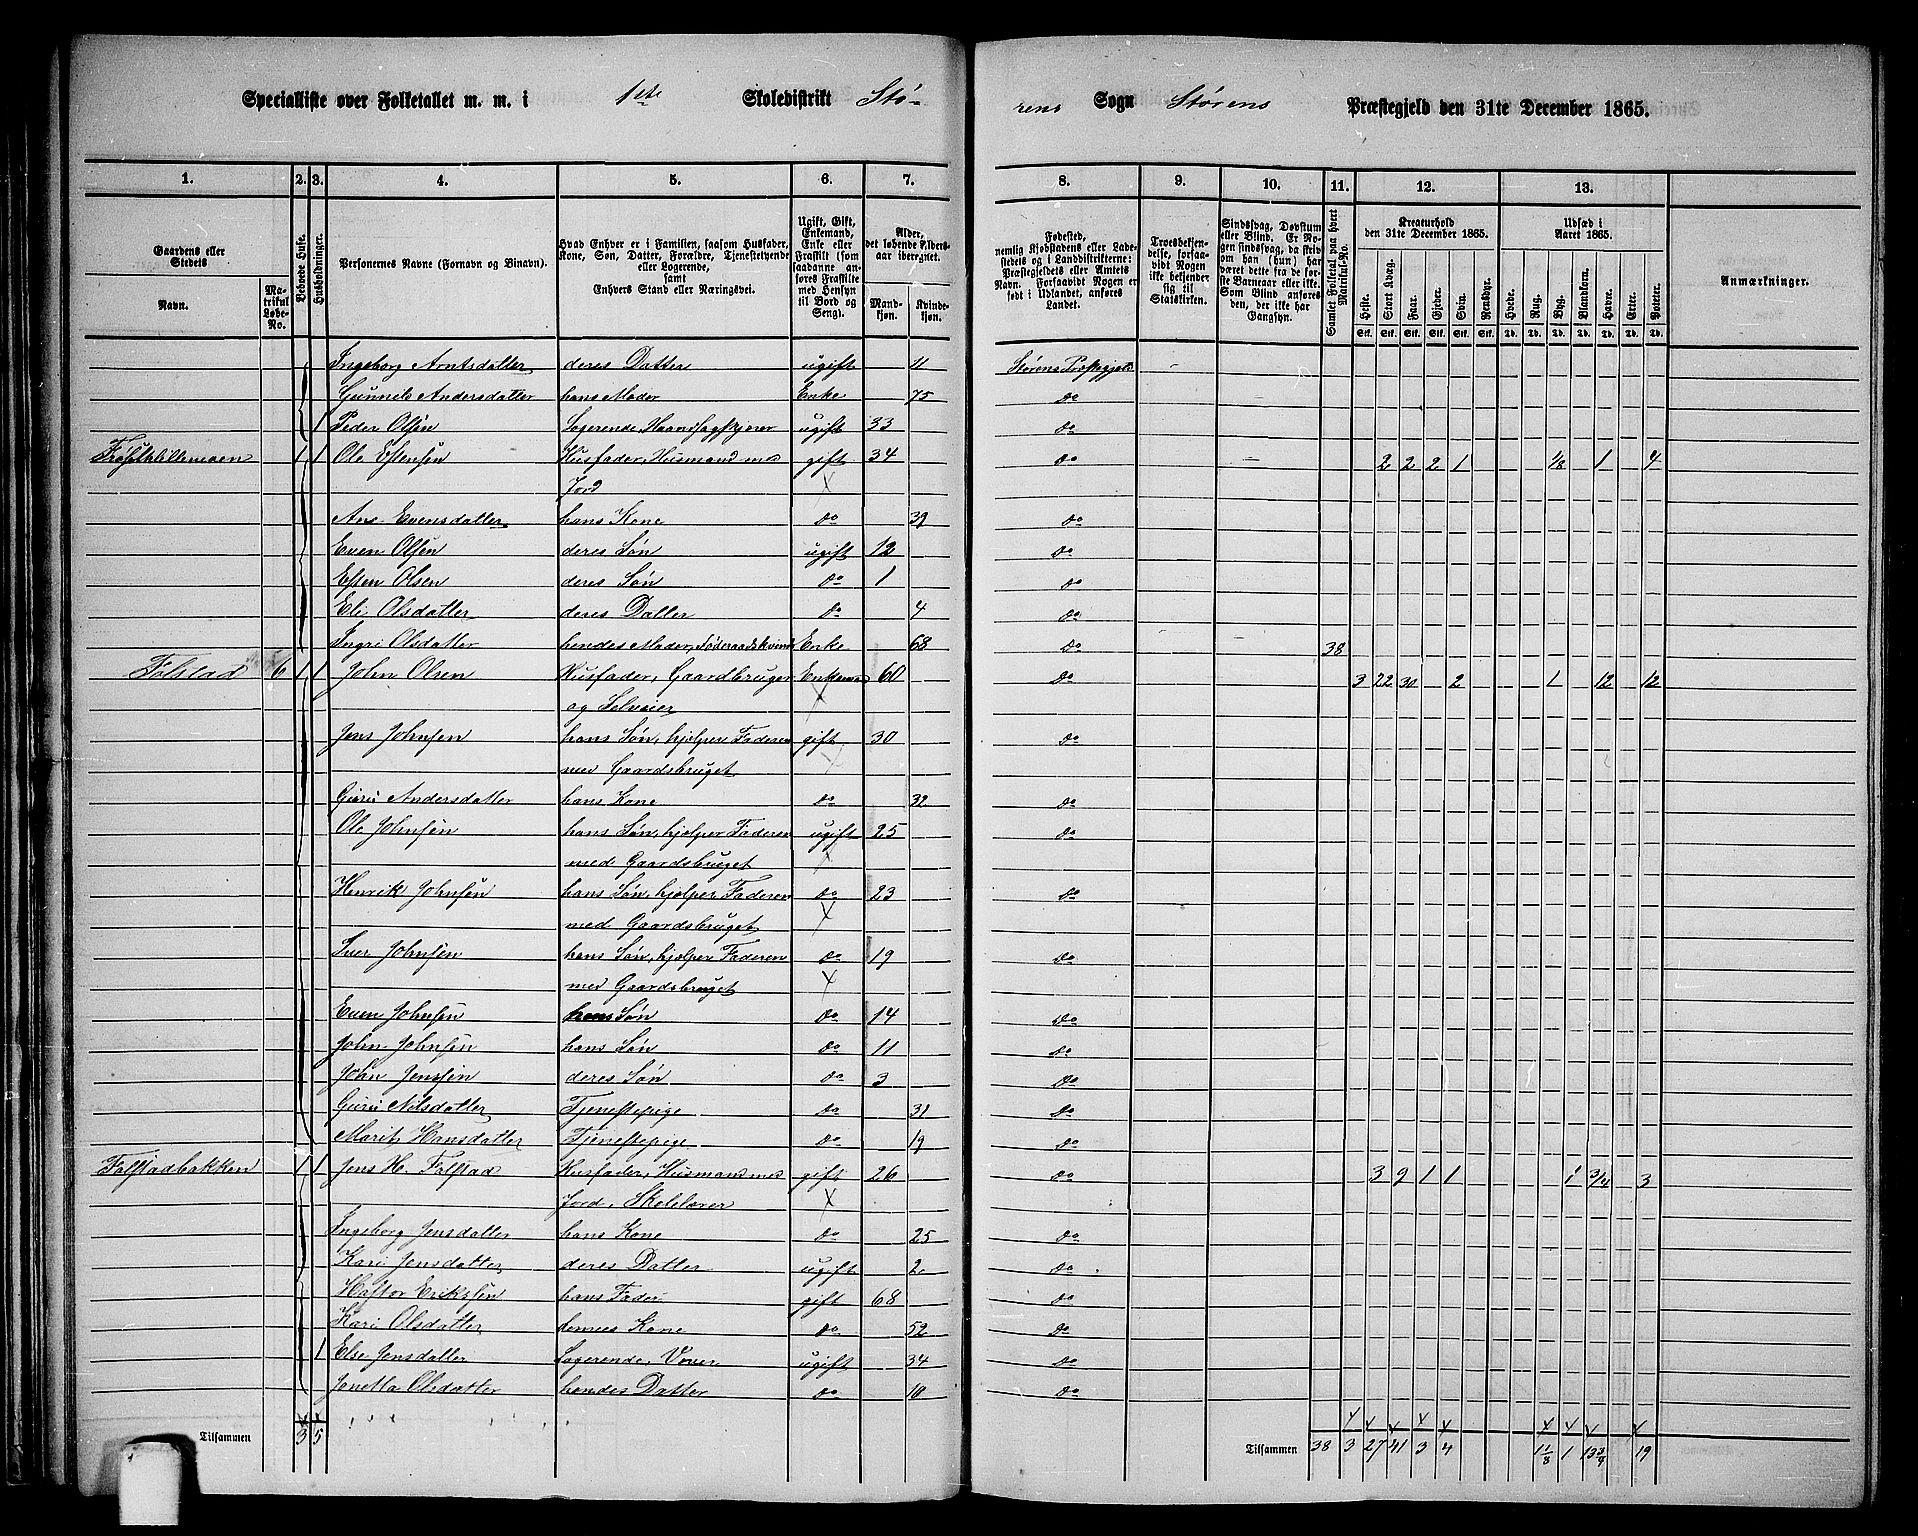 Specialliste over Folketallet m. m. i 1ste Skoledistrikt Stø-
rens Sogn Størens Præstegjeld den 31te December 1865.
1. 2. 3. 4. 5. 6. 7. 8. 9. 10. 11. 12. 13.
Gaardens eller Stedets
Navn.
Matrikul Løbe-No.
Beboede Huse.
Husholdninger.
Personernes Navne (Fornavn og Binavn).
Hvad Enhver er i Familien, saasom Husfader, Kone, Søn, Datter, Forældre, Tjenestetyende eller Logerende, samt Enhvers Stand eller Næringsvei.
Ugift, Gift, Enkemand, Enke eller Fraskilt (som saadanne anføres Fraskilte med Hensyn til Bord og Seng).
Alder, det løbende Aldersaar iberegnet.
Mandkjøn.
Kvindekjøn.
Fødested, nemlig Kjøbstadens eller Ladestedets og i Landdistrikterne: Præstegjeldets eller Amtets Navn. Forsaavidt Nogen er født i Udlandet, anføres Landet.
Troesbekjendelse, forsaavidt Nogen ikke bekjender sig til Statskirken.
Sindssvag, Døvstum eller Blind. Er Nogen sindssvag, da skrives om han (hun) har været dette fra de første Barneaar eller ikke. Som Blind anføres den, der ikke har Gangsyn.
Samlet Folketal paa hvert Matrikul-No.
Kreaturhold den 31te December 1865.
Heste. Stort Kvæg. Faar. Gjeder. Svin. Rensdyr.
Udsæd i Aaret 1865.
Hvede. Rug. Byg. Blandkorn. Havre. Erter. Poteter.
Anmærkninger.
Ingeborg Arntsdatter deres Datter ugift 11 Størens Præstegjeld
Gunnild Andersdatter hans Moder Enke 75 do
1 Peder Olsen Logerende, ugift 33 do
1 1 Ole Estensen Husfader, Husmand med gift 34 do 2 2 2 1 1/8 1 4
Jord
Ane Evensdatter hans Kone do 39 do
Even Olsen deres Søn ugift 12 do
Esten Olsen deres Søn do 1 do
Eli Olsdatter deres Datter do 4 do
Ingri Olsdatter hendes Moder, Føderaadskvinde Enke 68 do 38
Folstad 6 1 1 John Olsen Husfader, Gaardbruger Enkemand 60 do 3 22 30 2 1 12 12
og Selveier
Jens Johnsen hans Søn, hjelper Faderen gift 30 do
med Gaardsbruget
Guru Andersdatter hans Kone do 32 do
Ole Johnsen hans Søn, hjelper Faderen ugift 25 do
med Gaardsbruget
Henrik Johnsen hans Søn, hjelper Faderen do 23 do
med Gaardsbruget
Iver Johnsen hans Søn, hjelper Faderen do 19 do
med Gaardsbruget
Even Johnsen hans Søn do 14 do
John Johnsen hans Søn do 11 do
John Jensen deres Søn do 3 do
Guru Nilsdatter Tjenestepige do 31 do
Marit Hansdatter Tjenestepige do 19 do
Folstadbakken 1 1 Jens H. Folstad Husfader, Husmand med gift 26 do 3 9 1 1 1 3/4 3
Jord, Skolelærer
Ingeborg Jensdatter hans Kone do 25 do
Kari Jensdatter deres Datter ugift 2 do
Haftor Eriksen hans Fader gift 68 do
Kari Olsdatter Kone do 52 do
1 Else Jensdatter Logerende, ugift 34 do
Jonetta Olsdatter hendes Datter do 10 do
Tilsammen 3 5 Tilsammen 38 3 27 41 3 4 1 1/8 1 13 3/4 19